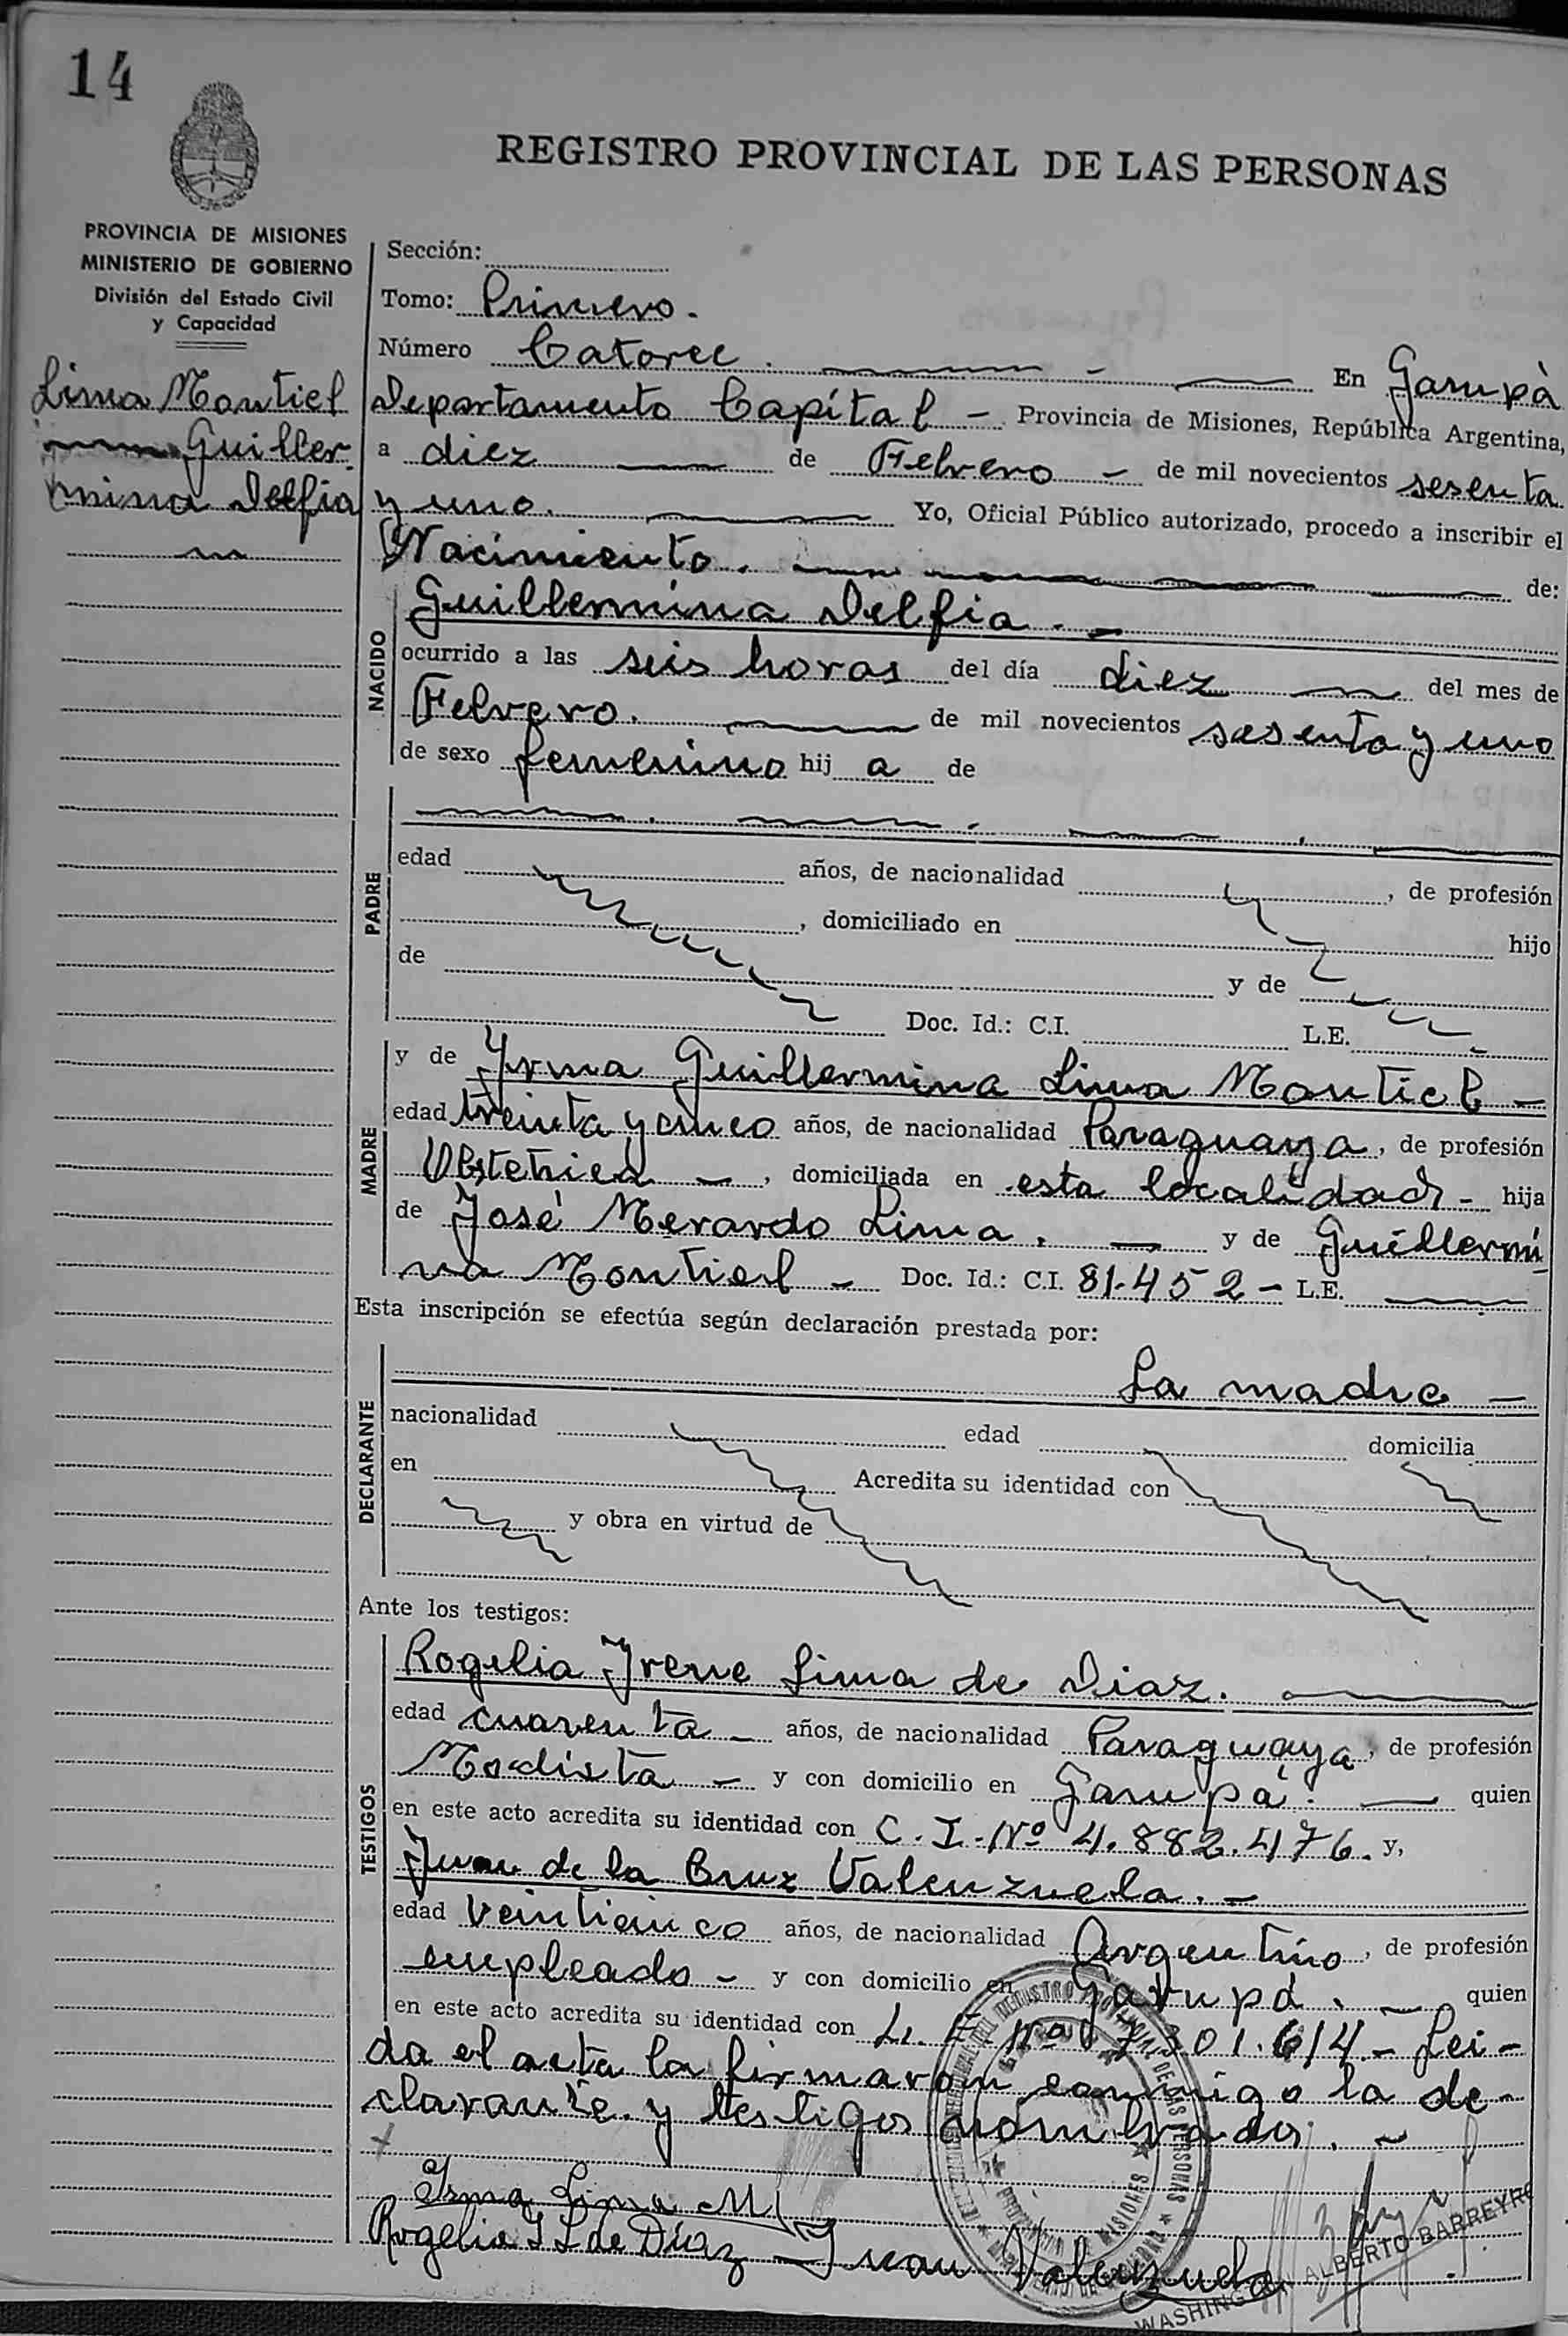 14
REGISTRO PROVINCIAL DE LAS PERSONAS
PROVINCIA DE MISIONES
MINISTERIO DE GOBIERNO
División del Estado Civil
y Capacidad
Lima Montiel
Guiller-
mina Delfia
Sección:
Tomo: Primero.
Número Catorce. En Garupà
Departamento Capítal - Provincia de Misiones, República Argentina,
a diez de Febrero - de mil novecientos sesenta
y uno. Yo, Oficial Público autorizado, procedo a inscribir el
Nacimiento. de:
NACIDO
Guillermina Delfia. -
ocurrido a las seis horas del día diez del mes de
Febrero. de mil novecientos sesenta y uno
de sexo femenino hij a de
PADRE
edad años, de nacionalidad , de profesión
, domiciliado en hijo
de y de
Doc. Id.: C.I. L.E.
MADRE
y de Yrma Guillermina Lima Montiel -
edad treinta y cinco años, de nacionalidad Paraguaya, de profesión
Obstetrica - , domiciliada en esta localidad - hija
de José Merardo Lima. - y de Guillermi
na Montiel - Doc. Id.: C.I. 81.452 - L.E.
Esta inscripción se efectúa según declaración prestada por:
DECLARANTE
La madre -
nacionalidad edad domicilia
en Acredita su identidad con
y obra en virtud de
Ante los testigos:
TESTIGOS
Rogelia Yrene Lima de Diaz.
edad cuarenta - años, de nacionalidad Paraguaya, de profesión
Modista - y con domicilio en Garupá. quien
en este acto acredita su identidad con C.I. Nº 4.882.476. y,
Juan de la Cruz Valenzuela. -
edad veinticinco años, de nacionalidad Argentino, de profesión
empleado - y con domicilio en Garupá. - quien
en este acto acredita su identidad con L.E. Nº 7.301.614 - Lei-
da el acta la firmaron conmigo la de-
clarante y testigos nombrados. -
Irma Lima M
Rogelia I L de Díaz - Juan Valenzuela
WASHINGTON ALBERTO BARREYRO